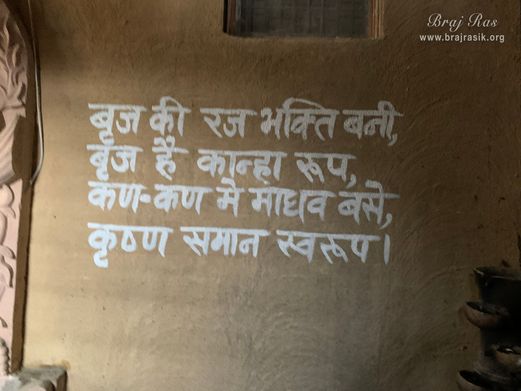 Braj Ras
www.brajrasik.org
बृज की रज भक्ति बनी,
बृज हैं कान्हा रूप,
कण-कण मे माधव बसे,
कृष्ण समान स्वरूप।